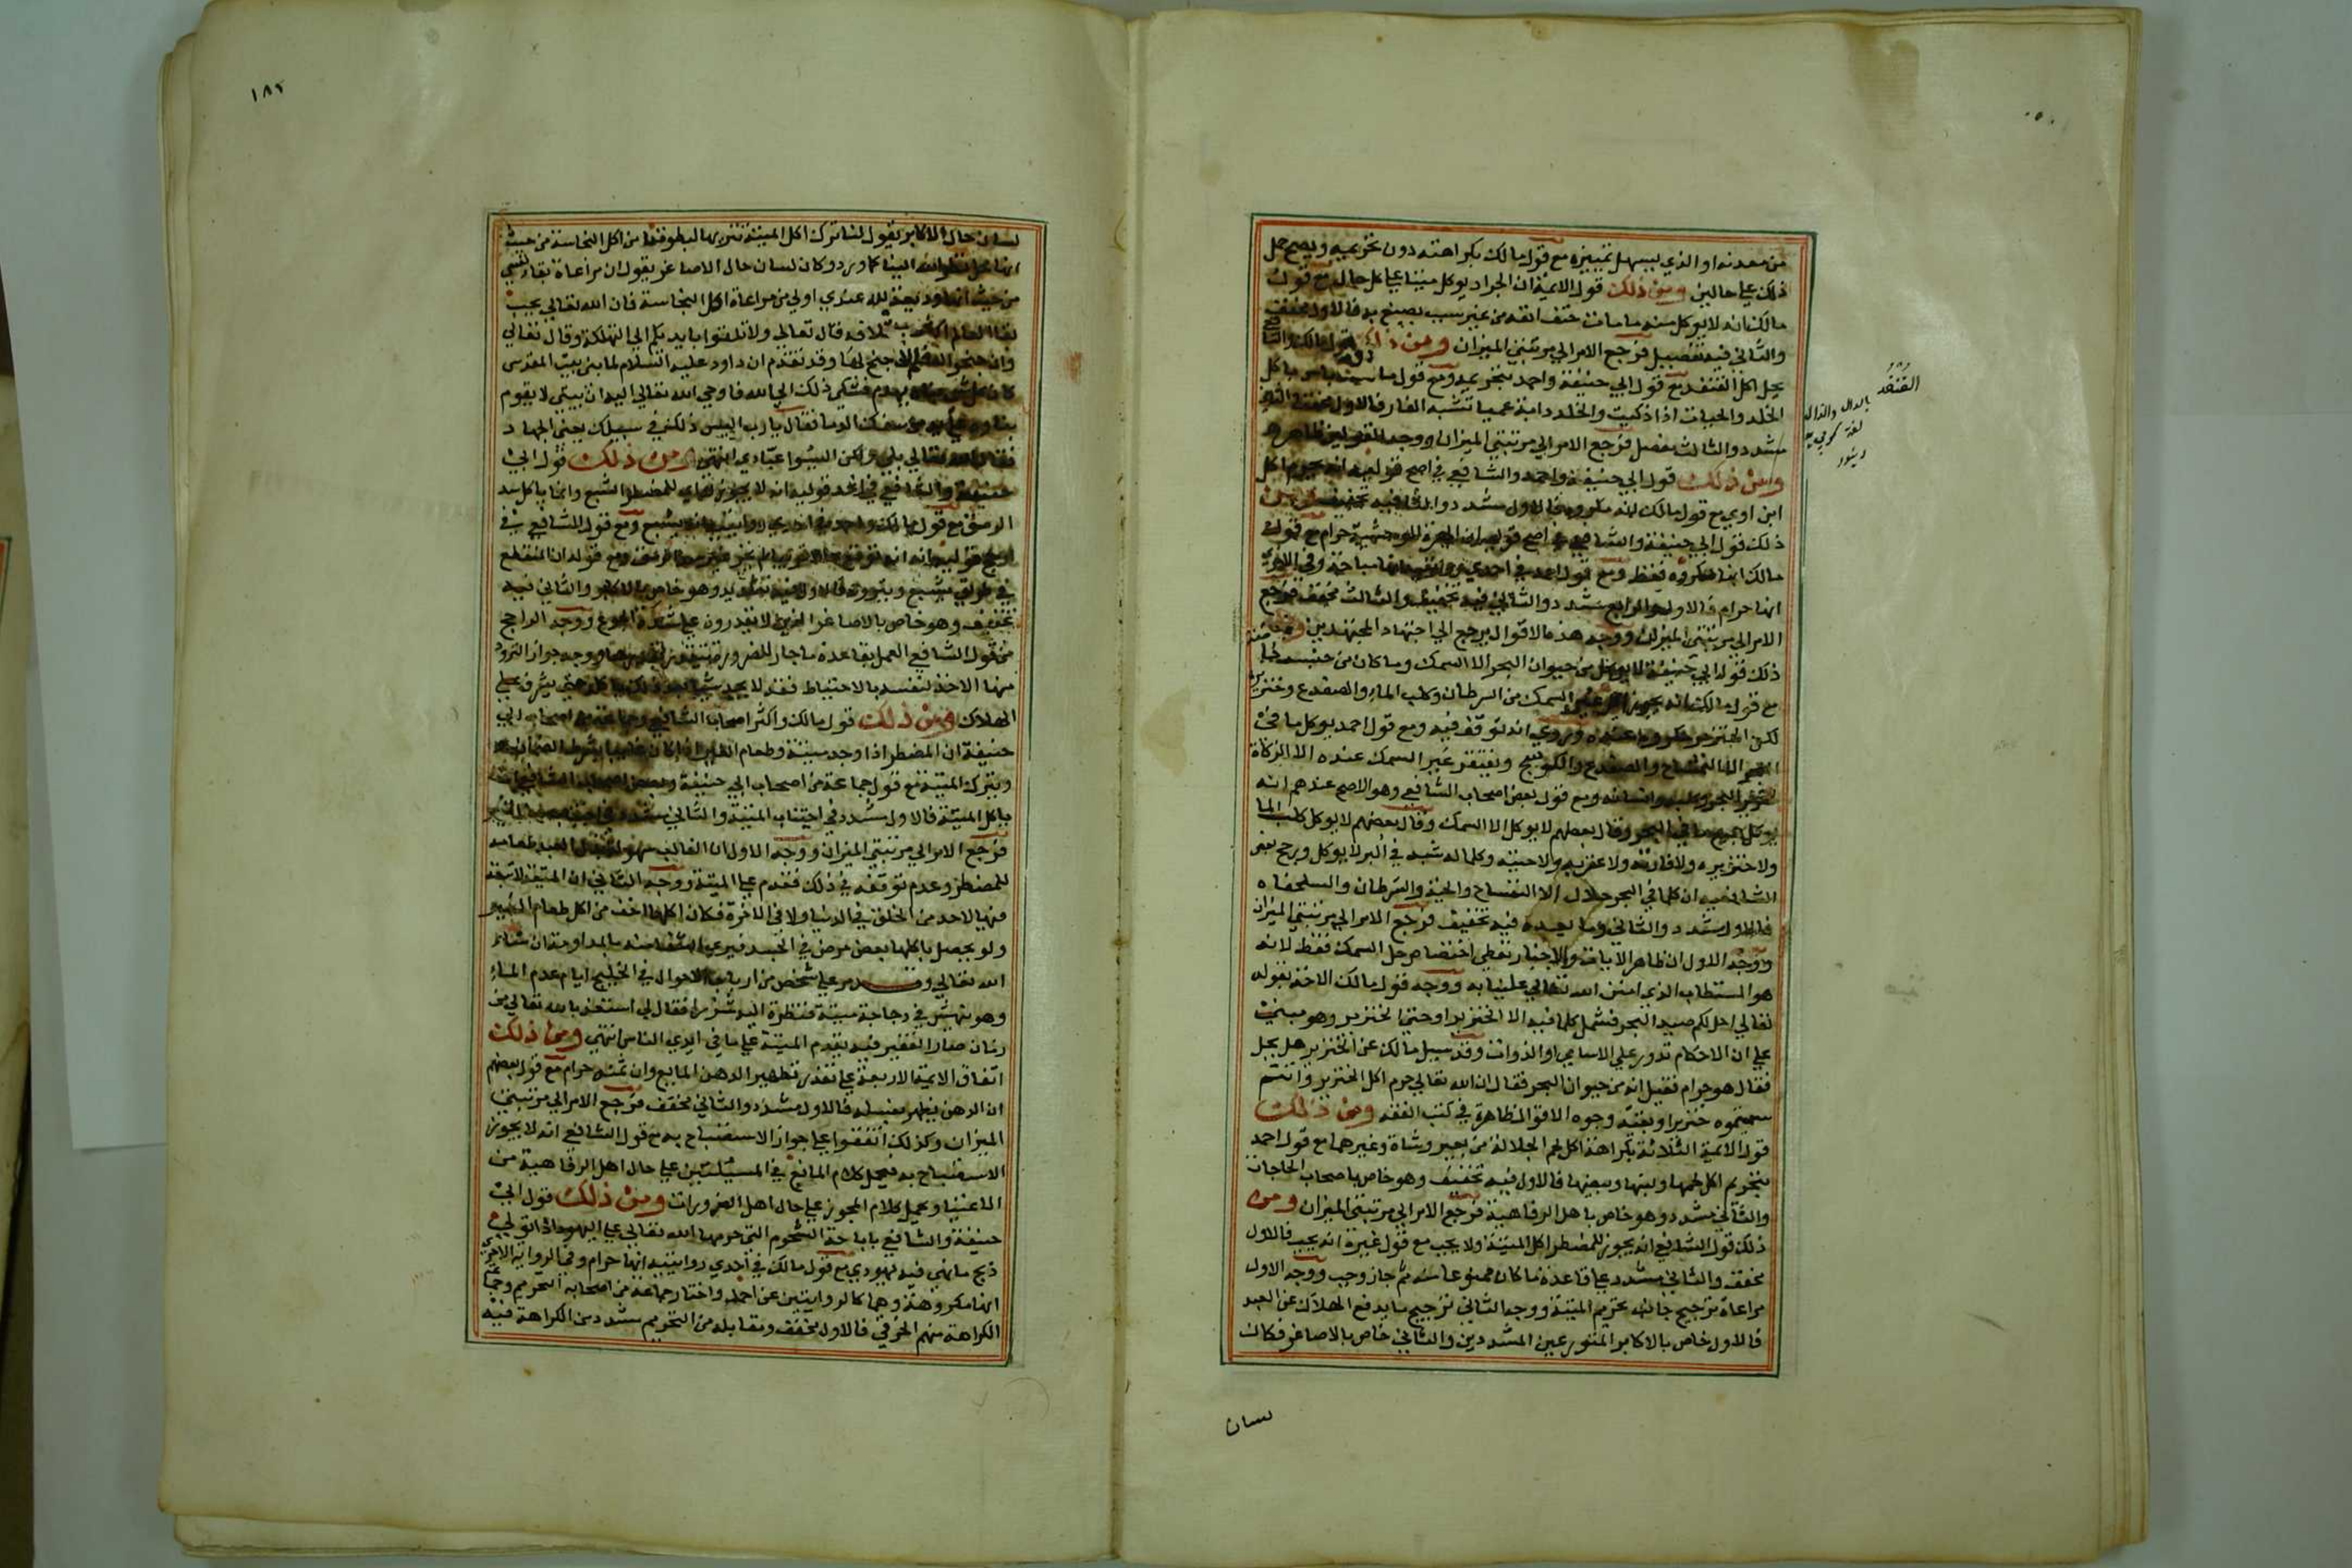 من معدنه او الذي يسهل تمييزه مع قول مالك بكراهته دون تحريمه ويصح حمل
ذلك علي حالين ومن ذلك قول الايمة ان الجراد يوكل ميتا علي كل حال مع قول
مالك انه لا يوكل منه ما مات حتف انفه من غير سبب يصنع به فالاول مخفف
والثاني فيه تفصيل فرجع الامر الي مرتبتي الميزان ومن ذلك قول مالك والشافعي
يحل اكل القنفد مع قول ابي حنيفة واحمد بتحريمه ومع قول مالك لا باس باكل
الخلد والحيات اذا ذكيت والخلد دابة عميا تشبه الفار فالاول مخفف والثاني
مشدد والثالث مفصل فرجع الامر الي مرتبتي الميزان ووجه القولين ظاهر
ومن ذلك قول ابي حنيفة واحمد والشافعي في اصح قوليه انه يحرم اكل
ابن اوي مع قول مالك انه مكروه فالاول مشدد والثاني فيه تخفيف ومن
ذلك قول ابي حنيفة والشافعي في اصح قوليه ان الهرة الوحشية حرام مع قول
مالك انها مكروه فقط ومع قول احمد في احدي روايتيه انها مباحة وفي الاخري
انها حرام فالاول والرابع مشدد والثاني فيه تخفيف والثالث مخفف فرجع
الامر الي مرتبتي الميزان ووجه هذه الاقوال يرجع الي اجتهاد المجتهدين ومن
ذلك قول ابي حنيفة لا يوكل من حيوان البحر الا السمك وما كان من جنسه
مع قول مالك انه يجوز اكل غير السمك من السرطان وكلب الماء والضفدع وخنزيره
لكن الخنزير مكروه عنده وروي انه توقف فيه ومع قول احمد يوكل ما في
البحر الا التمساح والضفدع والكوسج ويفتقر غير السمك عنده الا الزكاة
كخنزير البحر وكلبه وانسانه ومع قول بعض اصحاب الشافعي وهو الاصح عندهم انه
يوكل جميع ما في البحر وقال بعضهم لا يوكل الا السمك وقال بعضهم لا يوكل كلب الما
ولا خنزيره ولا فارته ولا عقربه ولا حيته وكلما له شبه في البر لا يوكل ورجح بعض
الشافعيه ان كلما في البحر حلال الا التمساح والحية والسرطان والسلحفاه
فالاول مشدد والثاني وما بعده فيه تخفيف فرجع الامر الي مرتبتي الميزان
ووجه الاول ان ظاهر الايات والاخبار تعطي اختصاص حل السمك فقط لانه
هو المستطاب الذي امتن الله تعالي علينا به ووجه قول مالك الاخذ بقوله
تعالي احل لكم صيد البحر فشمل كلما فيه الا الخنزير او حتي الخنزير وهو مبني
علي ان الاحكام تدور علي الاسامي او الذوات وقد سيل مالك عن الخنزير هل يحل
فقال هو حرام فقيل انه من حيوان البحر فقال ان الله تعالي حرم اكل الخنزير وانتم
سميتموه خنزيرا وبقية وجوه الاقوال ظاهرة في كتب الفقه ومن ذلك
قول الايمة الثلاثة بكراهة اكل لحم الجلالة من بعير وشاة وغيرهما مع قول احمد
بتحريم اكل لحمها ولبنها وبيضها فالاول فيه تخفيف وهو خاص باصحاب الحاجات
والثاني مشدد وهو خاص باهل الرفاهية فرجع الامر الي مرتبتي الميزان ومن
ذلك قول الشافعي انه يجوز للمضطر اكل الميتة ولا يجب مع قول غيره انه يجب فالاول
مخفف والثاني مشدد علي قاعدة ما كان ممنوعا منه ثم جاز وجب ووجه الاول
مراعاة ترجيح جانب تحريم الميتة ووجه الثاني ترجيح ما يدفع الهلاك عن العبد
فالاول خاص بالاكابر المتورعين المشددين والثاني خاص بالاصاغر فكان
القنفد
بالدال والذال
لغة
لسان
١٨٢
لسان حال الاكابر يقول لنا ترك اكل الميتة تنزيها لبطوننا من اكل النجاسة من حيث
البنا كما ورد وكان لسان حال الاصاغر يقول ان مراعاة بقاء نفسي
من حيث انها وديعة لله عندي اولي من مراعاة اكل النجاسة فان الله تعالي يحب
بقا العالم اكثر من اتلافه قال تعالي ولا تلقوا بايديكم الي التهلكة وقال تعالي
وان جنحوا للسلم فاجنح لها وقد تقدم ان داود عليه السلام لما بني بيت المقدس
كان كل شي بناه يهدم فشكي ذلك الي الله فاوحي الله تعالي اليه ان بيتي لا يقوم
من سفك الدما فقال يارب اليس ذلك في سبيلك يعني الجهاد
فقال الله تعالي بلي ولكن اليسوا عبادي انتهي ومن ذلك قول ابي
حنيفة والشافعي في احد قوليه انه لا يجوز للمضطر الشبع وانما ياكل سد
الرمق مع قول مالك واحمد في احدي روايتيه انه يشبع ومع قول الشافعي في
ارجح قوليه انه ان توقع حلالا قريبا لم يجز غير سد الرمق ومع قوله ان المنقطع
في طريق يشبع ويتزود فالاول فيه تشديد وهو خاص بالاكابر والثاني فيه
تخفيف وهو خاص بالاصاغر الذين لا يقدرون علي شدة الجوع ووجه الراجح
من قول الشافعي العمل بقاعدة ما جاز للضرورة يتقدر بقدرها ووجه جواز التزود
منها الاخذ لنفسه بالاحتياط فقد لا يجد شيا بعد ذلك ياكله حتي يشرف علي
الهلاك ومن ذلك قول مالك واكثر اصحاب الشافعي وجماعة من اصحاب ابي
حنيفة ان المضطر اذا وجد ميتة وطعام الغير اذا كان غايبا بشرط الضمان
ويترك الميتة مع قول جماعة من اصحاب ابي حنيفة وبعض اصحاب الشافعي انه
ياكل الميتة فالاول مشدد في اجتناب الميتة والثاني مشدد في اجتناب مال الغير
فرجع الامر الي مرتبتي الميزان ووجه الاول ان الغالب سهولة بذل العبد طعامه
للمضطر وعدم توقفه في ذلك فقدم علي الميتة ووجه الثاني ان الميتة لا تبعة
فيها لاحد من الخلق في الدنيا ولا في الاخرة فكان اكلها اخف من اكل طعام الغير
ولو يحصل باكلها بعض مرض في الجسد فيرجي الشفا منه بالمداومة ان شاء
الله تعالي وقد مر علي شخص من ارباب الاحوال في الخليج ايام عدم الماء
وهو ينهش في دجاجة ميتة فنظرة اليه شزرا فقال لي استعذ بالله تعالي من
زمان صار الفقير فيه يقدم الميتة علي ما في ايدي الناس انتهي ومن ذلك
اتفاق الايمة الاربعة علي تعذر تطهير الدهن المايع وان ثمنه حرام مع قول بعضهم
ان الدهن يطهر بغسله فالاول مشدد والثاني مخفف فرجع الامر الي مرتبتي
الميزان وكذلك اتفقوا علي جواز الاستصباح به مع قول الشافعي انه لا يجوز
الاستصباح به فيحمل كلام المانع في المسيلتين علي حال اهل الرفاهية من
الاغنيا ويحمل كلام المجوز علي حال اهل الضرورات ومن ذلك قول ابي
حنيفة والشافعي باباحة الشحوم التي حرمها الله تعالي علي اليهود اذا تولي
ذبح ما هي فيه يهودي مع قول مالك في احدي روايتيه انها حرام وفي الرواية الاخري
انها مكروهة وهما كالروايتين عن احمد واختار جماعة من اصحابه التحريم وجماعة
الكراهة منهم الخرقي فالاول مخفف ومقابله من التحريم مشدد من الكراهة فيه